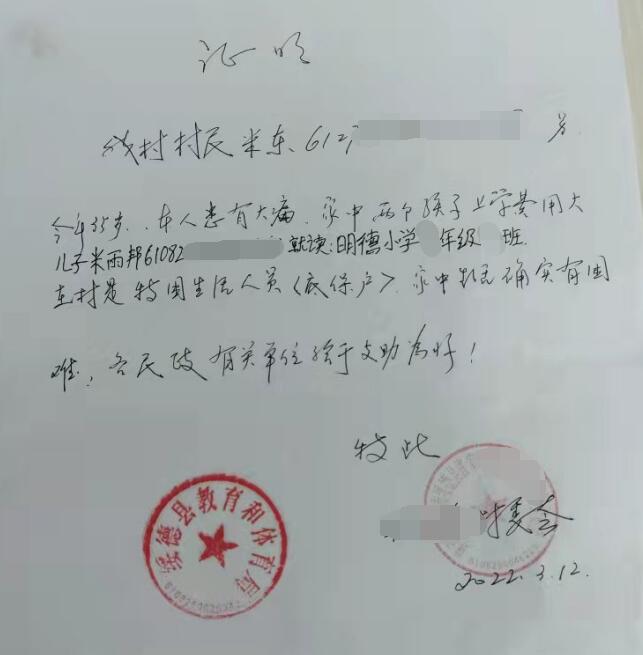 证明
我村村民米东、612
号
今年35岁、本人患有大病、家中两个孩子上学费用大
儿子米雨邦61082
就读:明德小学
年级
班
在村是特困生活人员(底保户)、家中生活确实有困
难,各民政有关单位给于支助为好!
特此
村委会
2022.3.12.
绥德县教育和体育局